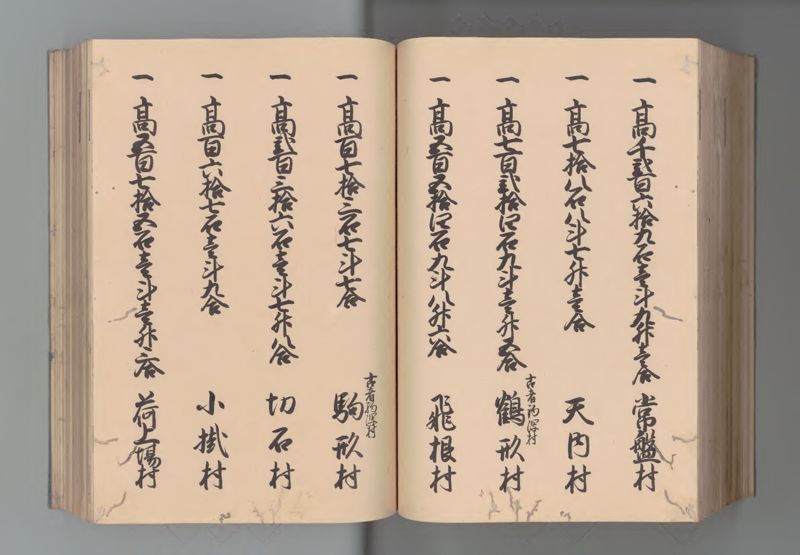 一 高千弐百六拾九石壱斗九升壱合 常盤村
一 高七拾八石八斗七升壱合 天内村
一 高七百弐拾四石九斗壱升五合 鶴形村
一 高五百五拾四石九斗八升六合 飛根村
一 高百七拾三石七斗七合 駒形村
一 高弐百三拾六石壱斗七升八合 切石村
一 高百六拾七石壱斗九合 小掛村
一 高五百七拾五石壱斗壱升三合 荷上場村